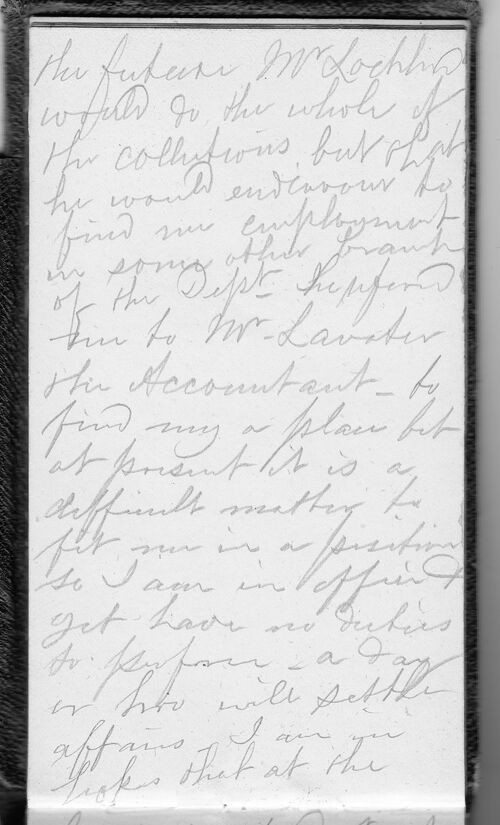 the future Mr Lochhead
would do the whole of
the collections but that
he would endeavour to
find me employment
in some other branch
of the Dept. he referred
me to Mr Lavater
the Accountant - to
find my a place but
at present it is a
difficult matter to
fit me in a position
so I am in office &
yet have no duties
to perform - a day
or two will settle
affairs I am in
hopes that at the